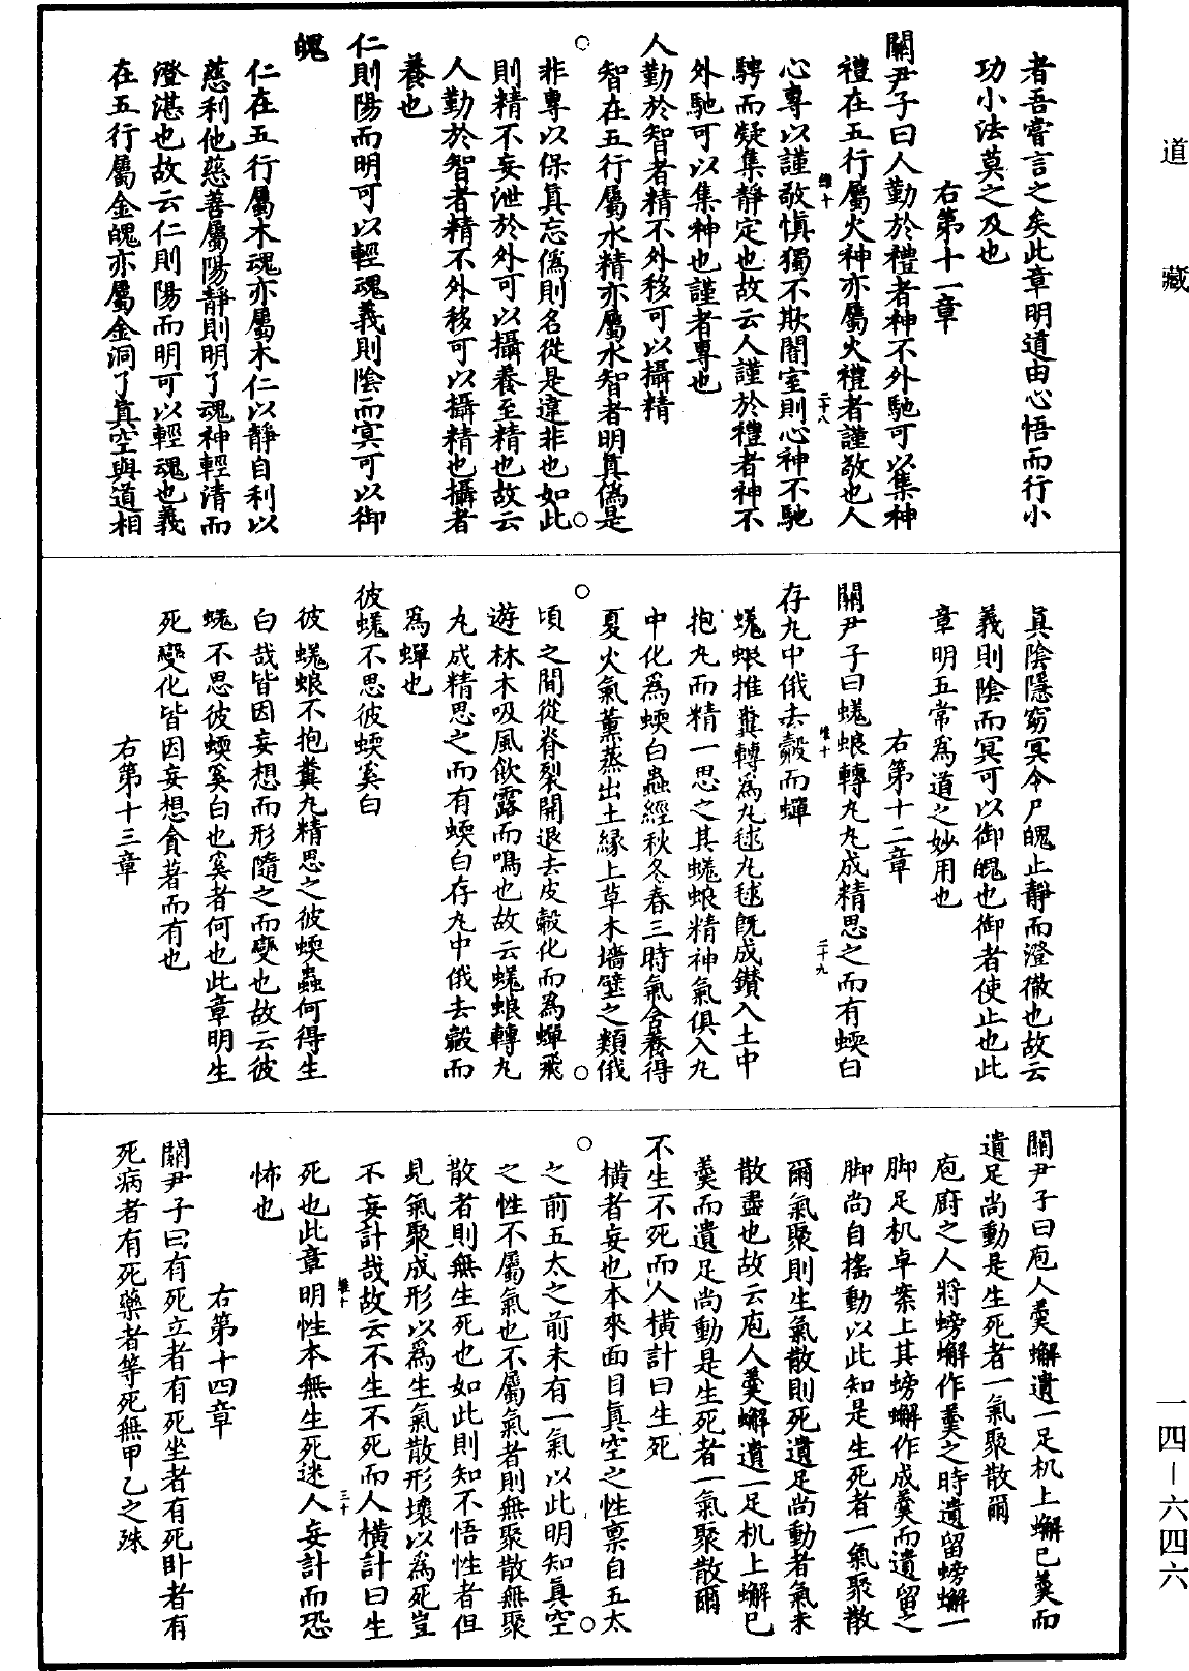 道藏
一四－六四六
者吾嘗言之矣此章明道由心悟而行小
功小法莫之及也
右第十一章
關尹子曰人勤於禮者神不外馳可以集神
禮在五行屬火神亦屬火禮者謹敬也人
心專以謹敬慎獨不欺闇室則心神不馳
騁而凝集靜定也故云人謹於禮者神不
外馳可以集神也謹者專也
人勤於智者精不外移可以攝精
智在五行屬水精亦屬水智者明真偽是
非專以保真忘偽則名從是違非也如此
則精不妄泄於外可以攝養至精也故云
人勤於智者精不外移可以攝精也攝者
養也
仁則陽而明可以輕魂義則陰而冥可以御
魄
仁在五行屬木魂亦屬木仁以靜自利以
慈利他慈善屬陽靜則明了魂神輕清而
澄湛也故云仁則陽而明可以輕魂也義
在五行屬金魄亦屬金洞了真空與道相
真陰隱窈冥令尸魄止靜而澄徹也故云
義則陰而冥可以御魄也御者使止也此
章明五常爲道之妙用也
右第十二章
關尹子曰蜣蜋轉丸丸成精思之而有蝡白
存丸中俄去殼而蟬
蜣蜋推糞轉爲丸毬丸毬旣成鑚入土中
抱丸而精一思之其蜣蜋精神氣俱入丸
中化爲蝡白蟲經秋冬春三時氣含養得
夏火氣薰蒸出土緣上草木墻壁之類俄
頃之間從脊裂開退去皮殼化而為蟬飛
遊林木吸風飲露而鳴也故云蜣蜋轉丸
丸成精思之而有蝡白存丸中俄去殼而
爲蟬也
彼蜣不思彼蝡奚白
彼蜣蜋不抱糞丸精思之彼蝡蟲何得生
白哉皆因妄想而形隨之而變也故云彼
蜣不思彼蝡奚白也奚者何也此章明生
死變化皆因妄想貪著而有也
右第十三章
關尹子曰庖人羹蠏遺一足机上蠏已羹而
遺足尚動是生死者一氣聚散爾
庖廚之人將螃蠏作羹之時遺留螃蠏一
脚足机卓案上其螃蠏作成羹而遺留之
脚尚自搖動以此知是生死者一氣聚散
爾氣聚則生氣散則死遺足尚動者氣未
散盡也故云庖人羹蠏遺一足机上蠏已
羹而遺足尚動是生死者一氣聚散爾
不生不死而人橫計曰生死
橫者妄也本來面目真空之性禀自五太
之前五太之前未有一氣以此明知真空
之性不屬氣也不屬氣者則無聚散無聚
散者則無生死也如此則知不悟性者但
見氣聚成形以爲生氣散形壞以為死豈
不妄計哉故云不生不死而人橫計曰生
死也此章明性本無生死迷人妄計而恐
怖也
右第十四章
關尹子曰有死立者有死坐者有死卧者有
死病者有死藥者等死無甲乙之殊